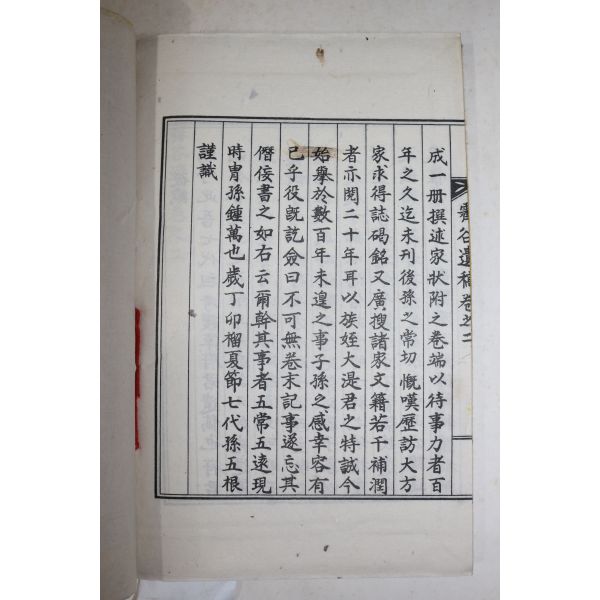 霽谷遺稿卷之二
成一册撰述家狀附之卷端以待事力者百
年之久迄未刊後孫之常切慨嘆歷訪大方
家求得誌碣銘又廣搜諸家文籍若干補潤
者亦閱二十年耳以族姪大湜君之特誠今
始擧於數百年未遑之事子孫之感幸容有
已乎役旣訖僉曰不可無卷末記事遂忘其
僭佞書之如右云爾幹其事者五常五遠現
時胄孫鍾萬也歲丁卯榴夏節七代孫五根
謹識